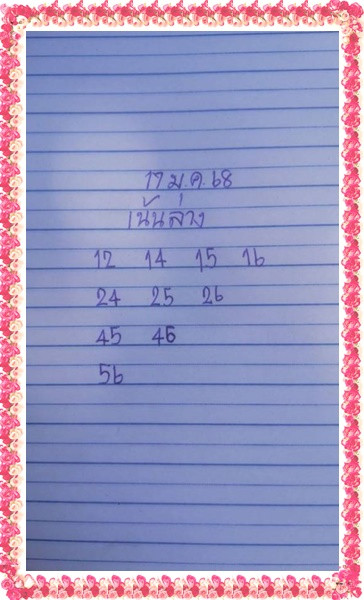 17 ม.ค. 68
เน้นล่าง
12 14 15 16
24 25 26
45 46
56